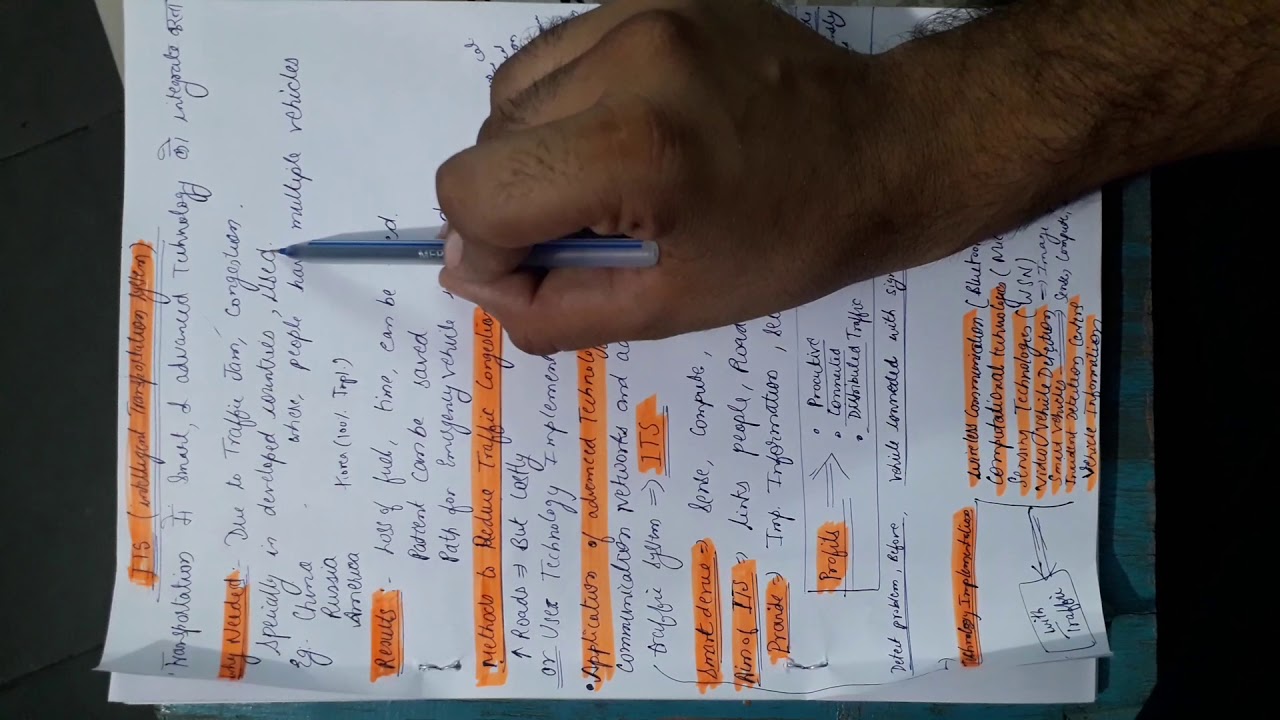 ITS (Intelligent Transportation System)
Transportation में Smart, & advanced Technology को integrate करना
Why Needed:- Due to Traffic Jam, Congestion.
Specially in developed countries, Used
where, people have multiple vehicles
Eg. China
Russia Korea (100% Impl)
America
Results - Loss of fuel, time, can be
Patient can be saved
Path for Emergency vehicle
Methods to Reduce Traffic Congestion
↑ Roads ⇒ But Costly
or Uses Technology Implement
• Application of advanced Technolog
communication networks and
(traffic system ⇒ ITS
Smart device ⇒ Sense, Compute,
Aim of ITS ⇒ links people, Road
Provide ⇒ Imp. Information,
Profits ⇒ • Proactive
• Connected
• Distributed Traffic
Detect problem, Before, Vehicle connected with
Technology Implementation
with Traffic
Wireless Communication (Bluetoo
Computational technologies
Sensing Technologies (WSN)
Video Vehicle Detection ⇒ Image
Smart Vehicles ⇒ Sense, Compute,
Incident Detection Centre
Vehicle Information